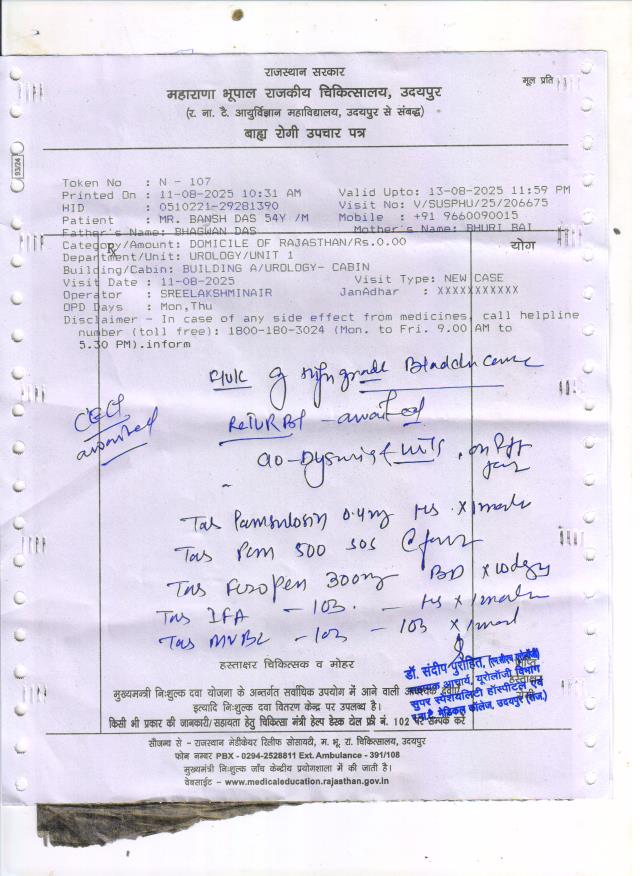 राजस्थान सरकार
मूल प्रति
महाराणा भूपाल राजकीय चिकित्सालय, उदयपुर
(र. ना. टै. आयुर्विज्ञान महाविद्यालय, उदयपुर से संबद्ध)
बाह्य रोगी उपचार पत्र
93/24
Token No : N - 107
Printed On : 11-08-2025 10:31 AM Valid Upto: 13-08-2025 11:59 PM
HID : 0510221-29281390 Visit No: V/SUSPHU/25/206675
Patient : MR. BANSH DAS 54Y /M Mobile : +91 9660090015
Father's Name: BHAGWAN DAS Mother's Name: BHURI BAI
Category/Amount: DOMICILE OF RAJASTHAN/Rs.0.00
R योग
Department/Unit: UROLOGY/UNIT 1
Building/Cabin: BUILDING A/UROLOGY- CABIN
Visit Date : 11-08-2025 Visit Type: NEW CASE
Operator : SREELAKSHMINAIR JanAdhar : XXXXXXXXXXX
OPD Days : Mon,Thu
Disclaimer - In case of any side effect from medicines, call helpline
number (toll free): 1800-180-3024 (Mon. to Fri. 9.00 AM to
5.30 PM).inform
high grade Bladder
CECT
awaited
ReTURBT - awaited
Tab Tamsulosin 0.4mg HS x 1
Tab PCM 500 SOS
Tab 300mg BD x 10 days
Tab IFA - HS x 1
Tab MVBC x 1
हस्ताक्षर चिकित्सक व मोहर
डॉ. संदीप पुरोहित,
सहायक आचार्य, यूरोलॉजी विभाग
सुपर स्पेशयलिटी हॉस्पीटल एवं
मेडिकल कॉलेज, उदयपुर (राज.)
मुख्यमन्त्री निःशुल्क दवा योजना के अन्तर्गत सर्वाधिक उपयोग में आने वाली
इत्यादि निःशुल्क दवा वितरण केन्द्र पर उपलब्ध है।
किसी भी प्रकार की जानकारी/सहायता हेतु चिकित्सा मंत्री हेल्प डेस्क टोल फ्री नं. 102 पर सम्पर्क करे
सौजन्य से - राजस्थान मेडीकेयर रिलीफ सोसायटी, म. भू. रा. चिकित्सालय, उदयपुर
फोन नम्बर PBX - 0294-2528811 Ext. Ambulance - 391/108
मुख्यमंत्री निःशुल्क जाँच केन्द्रीय प्रयोगशाला में की जाती है।
वेबसाईट - www.medicaleducation.rajasthan.gov.in